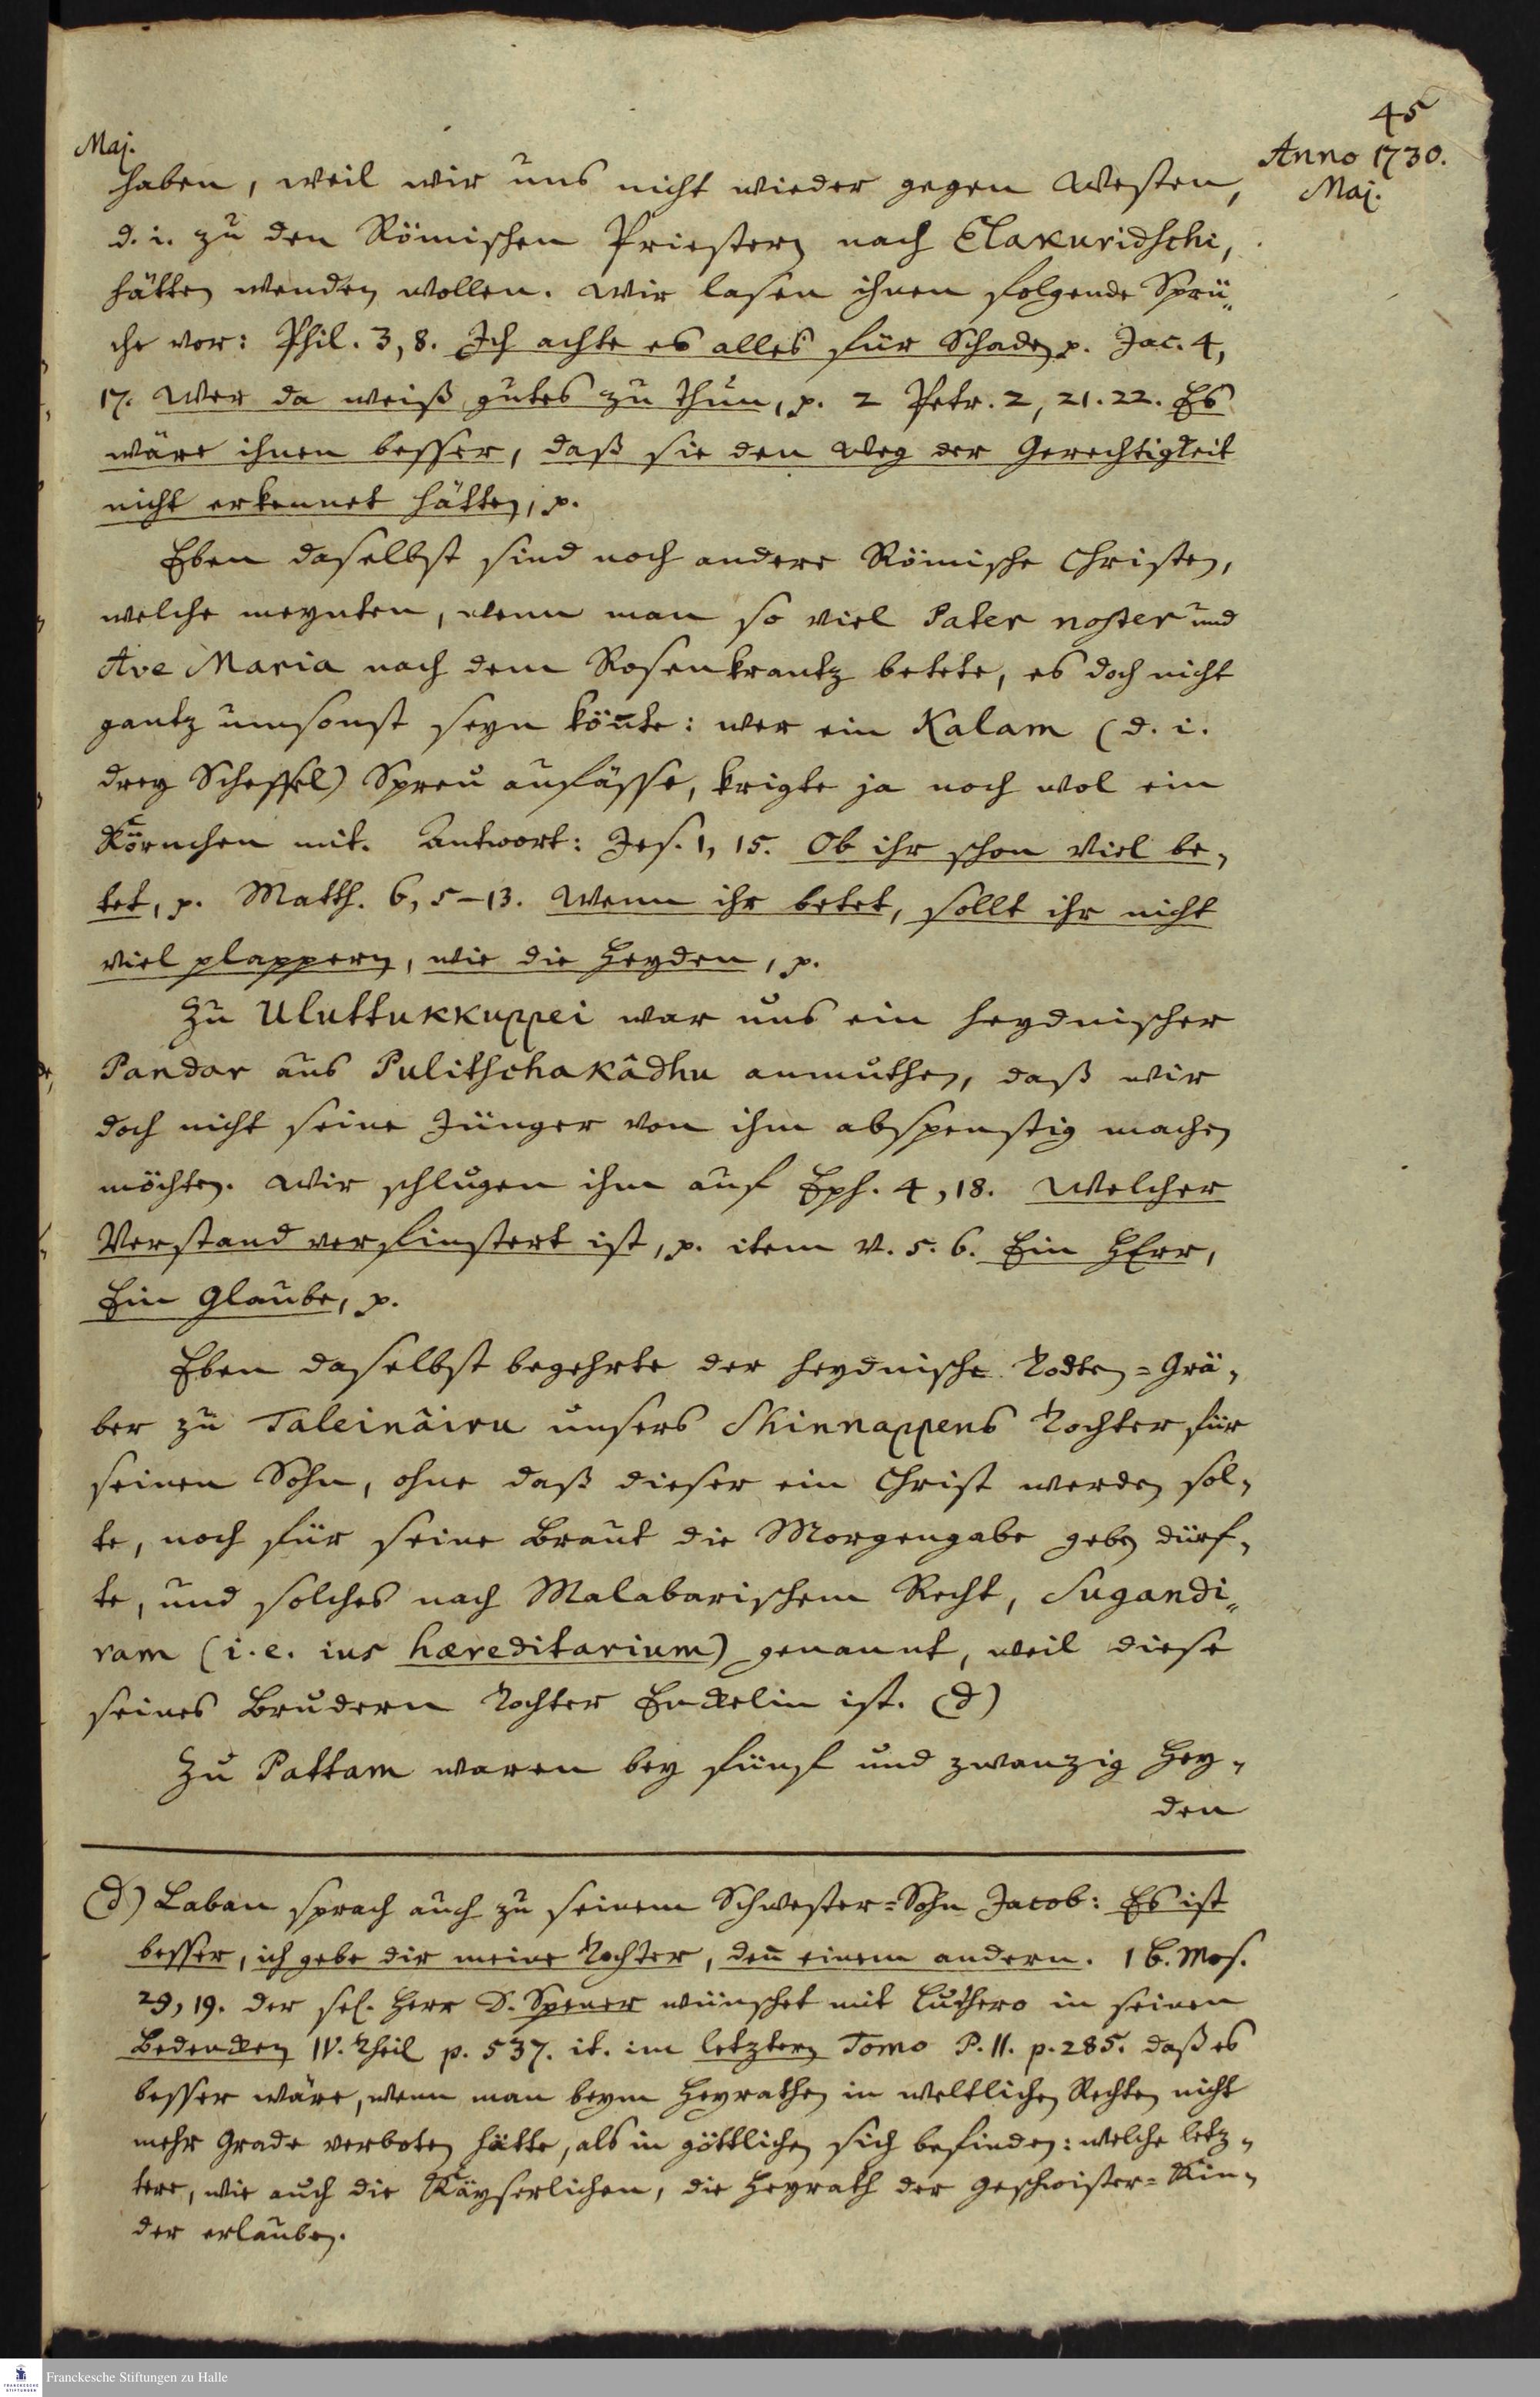 45
Anno 1730.
Maj.
Maj.
haben, weil wir uns nicht wieder gegen Westen,
d. i. zu den Römischen Priestern nach Elakuridschi,
hätten wenden wollen. Wir lasen ihnen folgende Sprü„
che vor: Phil. 3, 8. Ich achte es alles für Schaden p. Jac. 4,
17. Wer da weiß gutes zu thun, p. 2 Petr. 2, 21. 22. Es
wäre ihnen besser, daß sie den Weg der Gerechtigkeit
nicht erkennet hätten, p.
Eben daselbst sind noch andere Römische Christen,
welche meynten, wenn man so viel Pater noster und
Ave Maria nach dem Rosenkrantz betete, es doch nicht
gantz umsonst seyn kön̄te: wer ein Kalam (d. i.
drey Scheffel) Spreu aufässe, krigte ja noch wol ein
Körnchen mit. Antwort: Jes. 1, 15. Ob ihr schon viel be,
tet, p. Matth. 6, 5-13. Wenn ihr betet, sollt ihr nicht
viel plappern, wie die Heyden, p.
Zu Uluttukkuppei war uns ein heydnischer
Pandar aus Pulitschakâdhu anmuthen, daß wir
doch nicht seine Jünger von ihm abspenstig machen
möchten. Wir schlugen ihm auf Eph. 4, 18. Welcher
Verstand verfinstert ist, p. item v. 5. 6. Ein HErr,
Ein Glaube, p.
Eben daselbst begehrte der heydnische Todten=Grä,
ber zu Taleinâiru unsers Shinnappens Tochter für
seinen Sohn, ohne daß dieser ein Christ werden sol,
te, noch für seine Braut die Morgengabe geben dürf,
te, und solches nach Malabarischem Recht, Sugandi„
ram (i. e. ius hæreditarium) genannt, weil diese
seines Brudern Tochter Enckelin ist. (d)
Zu Pattam waren bey fünf und zwanzig Hey,
den
(d) Laban sprach auch zu seinem Schwester=Sohn Jacob: Es ist
besser, ich gebe dir meine Tochter, den̄ einem andern. 1 B. Mos.
29, 19. der sel. Herr D. Spener wünschet mit Luthero in seinen
Bedencken IV. Theil p. 537. it. im letztern Tomo P. II. p. 285. daß es
besser wäre, wenn man beym Heyrathen in weltlichen Rechten nicht
mehr Grade verboten hätte, als in göttlichen sich befinden: welche letz,
tere, wie auch die Käyserlichen, die Heyrath der Geschwister=Kin,
der erlauben.
Franckesche Stiftungen zu Halle